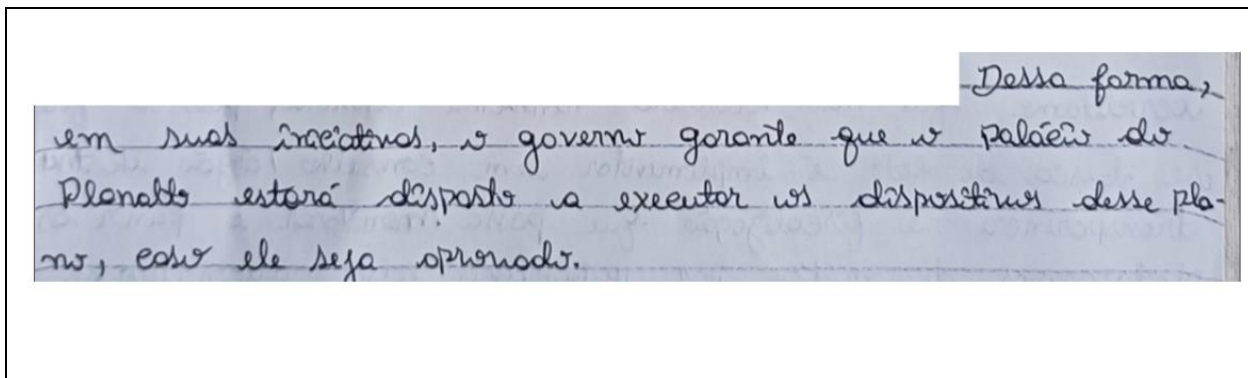 Dessa forma,
em suas iniciativas, o governo garante que o palácio do
Planalto estará disposto a executar os dispositivos desse pla-
no, caso ele seja aprovado.